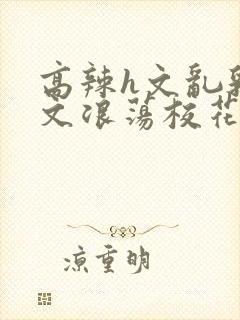 高辣h文乱乳
文浪荡校花
凉重明